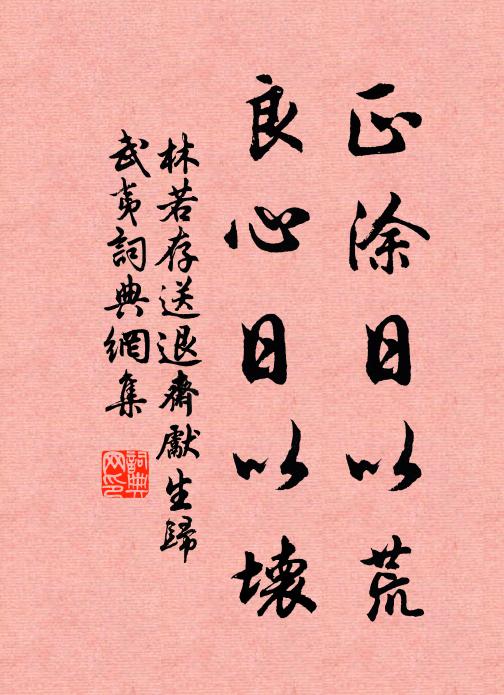 正涂日以荒
良心日以壞
林若存送退齋獻生歸
武夷詞典網集
詞典网印